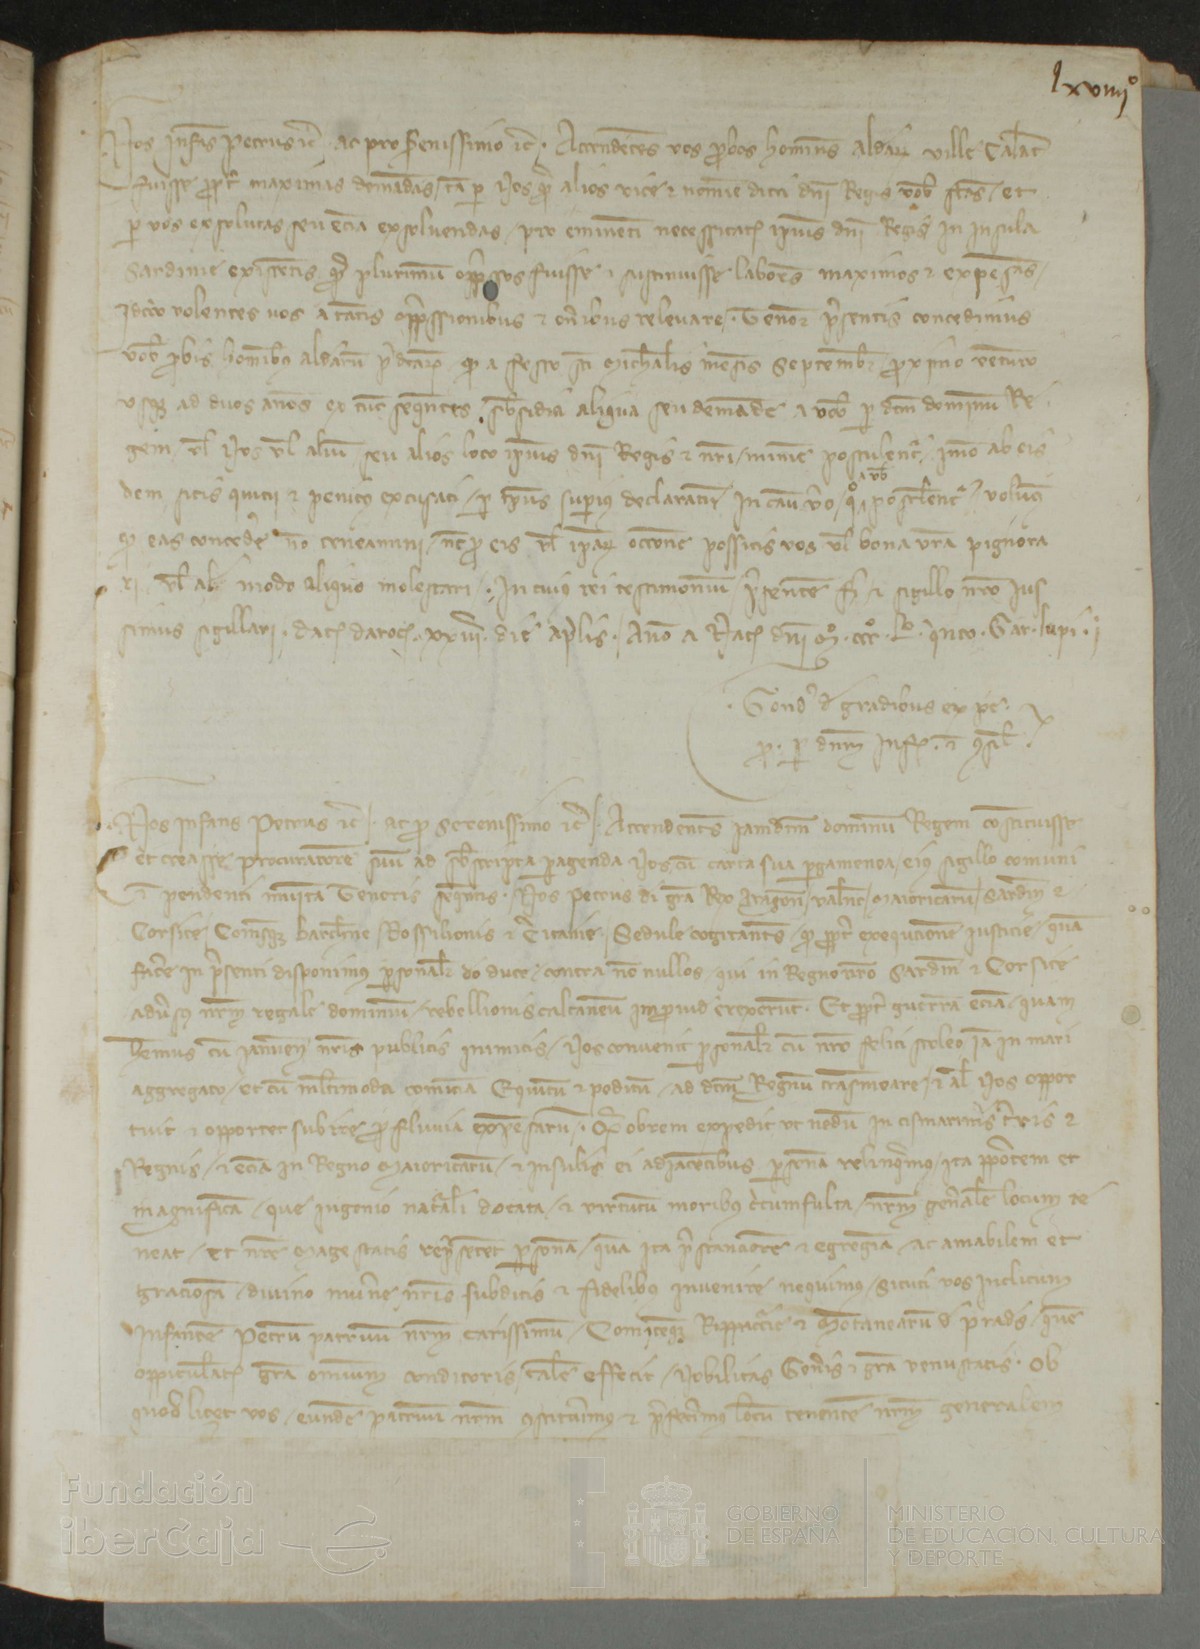 lxviiiiº
Nos Infans Petrus etc. ac pro Serenissimo etc. Attendentes vos probos homines aldearum ville Calat
fuisse propter maximas demandas tam per Nos quam alios vice et nomine dicti domini Regis vobis factas et
per vos exsolutas seu etiam exsolvendas pro eminenti necessitate ipsius domini Regis in insula
Sardinie existentis plurimum oppressos fuisse et sustinuisse labores maximos et expensas
Idcirco volentes vos a tantis oppressionibus et oneribus relevare. Tenore presentis concedimus
vobis probis hominibus aldearum predictarum quod a festo sancti Michaelis mensis Septembris proximo venturo
usque ad duos annos ex tunc sequentes subsidia aliqua seu demande a vobis per dictum dominum Re
gem vel Nos vel alium seu alios loco ipsius domini Regis et nostri minime postulentur Imo ab eis
dem sitis quitii et penitus excusati per tempus superius declaratum In casu vero quo a vobis postulentur volumus
quod eas concedere non teneamini nec pro eis vel ipsarum occasione possitis vos vel bona vestra pignora
ri vel alio modo aliquo molestari. In cuius rei testimonium presentem fieri et sigillo nostro ius
simus sigillari. Datum Daroce xxiiii die aprilis Anno a Nat domini Mº cccº Lº quinto. Gar. lupi
Gond de gradibus ex pe
pro. per dominum Inf. et consil
Nos Infans Petrus etc. ac pro Serenissimo etc. Attendentes iamdictum dominum Regem constituisse
et creasse procuratorem suum ad subscripta peragenda Nos cum carta sua pergamenea eius sigillo comuni
in pendenti munita Tenoris sequentis. Nos Petrus dei gracia Rex Aragonum Valencie Maioricarum Sardinie et
Corsice Comesque Barchinone Rossilionis et Ceritanie. Sedule cogitantes quod propter exequtionem iusticie quam
facere in presenti disponimus personaliter deo duce contra nonnullos qui in Regno nostro Sardinie et Corsice
adversus nostrum regale dominium rebellionis calcaneum improvide erexerunt. Et propter guerram etiam quam
habemus cum Januensibus nostris publicis inimicis Nos convenit personaliter cum nostro felici stoleo iam in mari
aggregato et cum multimoda comitiva Equitum et peditum ad dictum Regnum transmeare et al Nos oppor
tuit et opportet subire profluvia expensarum. Quam obrem expedit ut nedum in cismarinis terris et
Regnis et etiam in Regno Maioricarum et insulis ei adiacentibus personam relinquamus ita ppotem et
magnificam que ingenio naturali dotata et virtutum moribus circumfulta nostrum generalem locum te
neat et nostre Magestatis representet personam quam ita prestantiorem et egregiam ac amabilem et
graciosam divino munere nostris subditis et fidelibus invenire nequimus sicuti vos inclitum
Infantem Petrum patruum nostrum carissimum Comitemque Rippacurcie et Montanearum de Prades quem
oppitulante gracia omnium conditoris talem effecit Nobilitas Generis et gracia venustatis. Ob
quod licet vos eundem patruum nostrum constituerimus et prefecerimus locum tenentem nostrum generalem
Fundación
iberCaja
GOBIERNO
DE ESPAÑA
MINISTERIO
DE EDUCACIÓN, CULTURA
Y DEPORTE